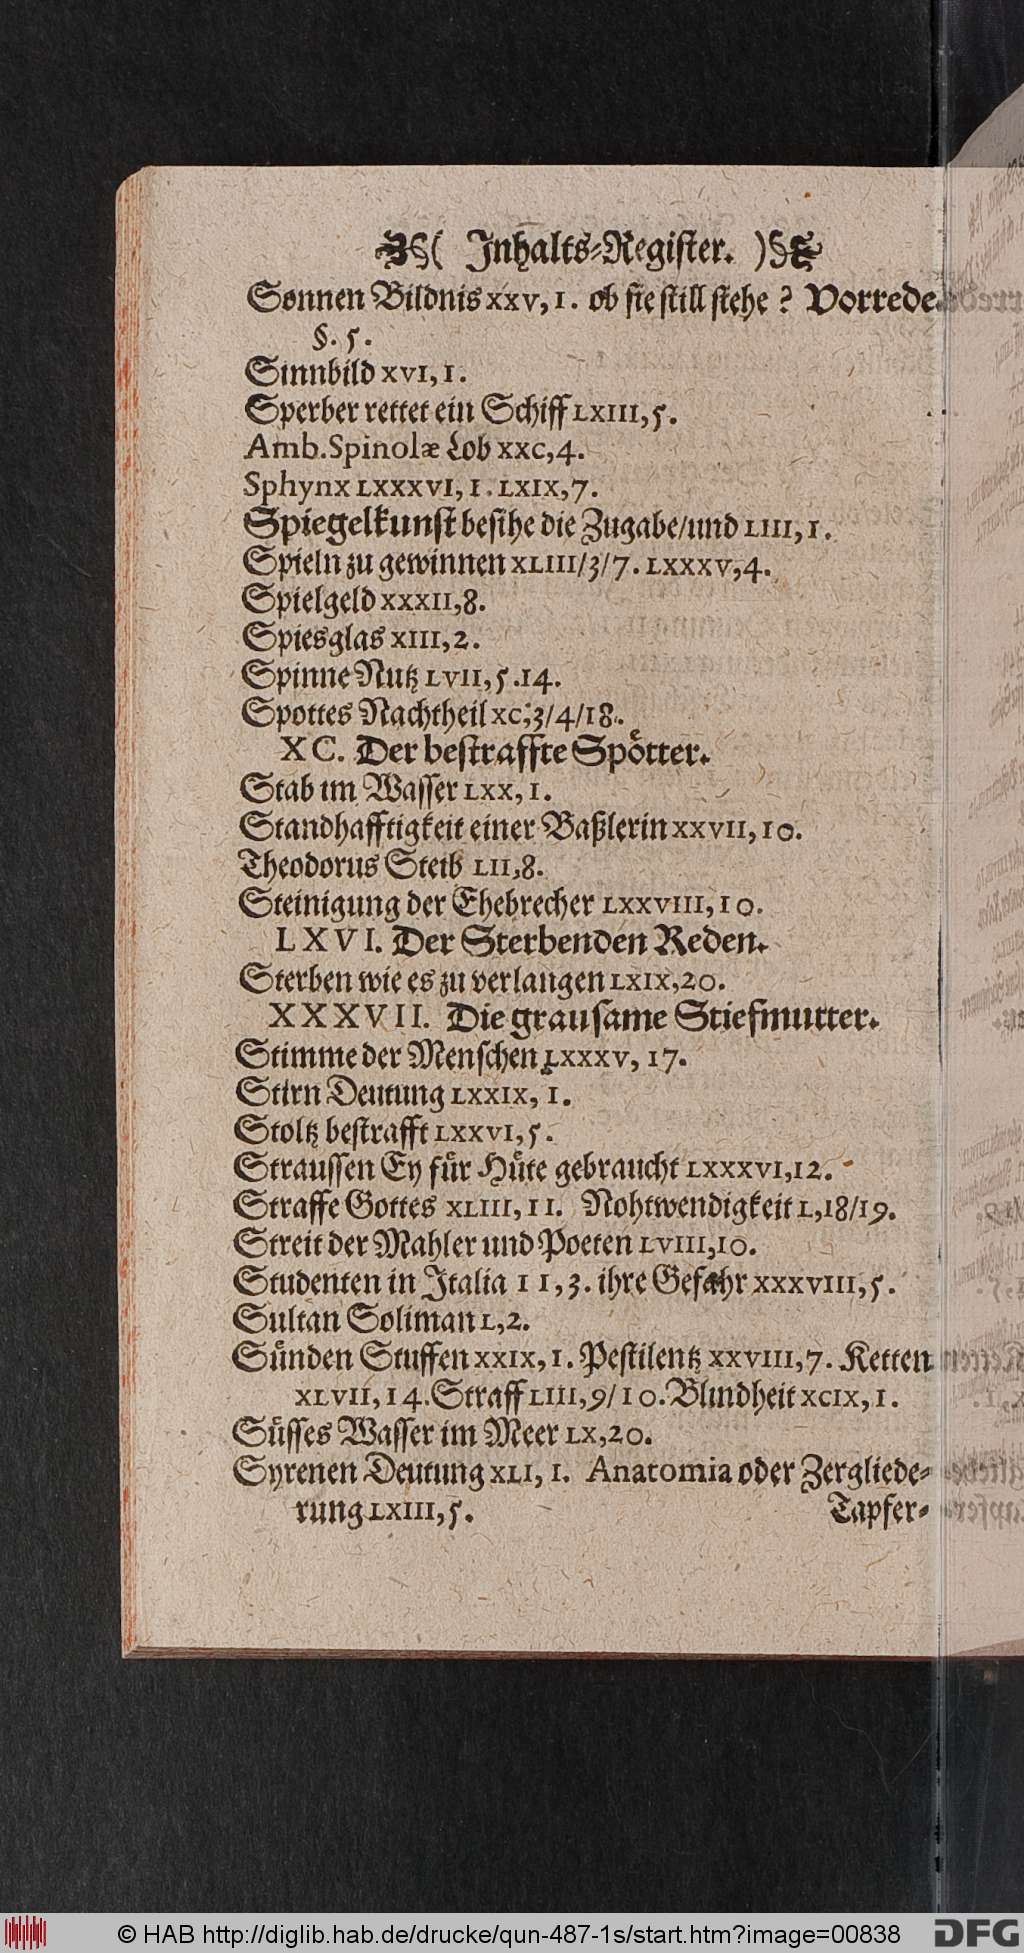 ( Inhalts-Register. )
Sonnen Bildnis XXV, 1. ob sie still stehe? Vorrede
§. 5.
Sinnbild XVI, 1.
Sperber rettet ein Schiff LXIII, 5.
Amb. Spinolæ Lob XXC, 4.
Sphynx LXXXVI, 1. LXIX, 7.
Spiegelkunst besihe die Zugabe/und LIII, 1.
Spieln zu gewinnen XLIII/3/7. LXXXV, 4.
Spielgeld XXXII, 8.
Spiesglas XIII, 2.
Spinne Nutz LVII, 5.14.
Spottes Nachtheil XC; 3/4/18.
XC. Der bestraffte Spötter.
Stab im Wasser LXX, 1.
Standhafftigkeit einer Baßlerin XXVII, 10.
Theodorus Steib LII, 8.
Steinigung der Ehebrecher LXXVIII, 10.
LXVI. Der Sterbenden Reden.
Sterben wie es zu verlangen LXIX, 20.
XXXVII. Die grausame Stiefmutter.
Stimme der Menschen LXXXV, 17.
Stirn Deutung LXXIX, 1.
Stoltz bestrafft LXXVI, 5.
Straussen Ey für Hüte gebraucht LXXXVI, 12.
Straffe Gottes XLIII, 11. Nohtwendigkeit L, 18/19.
Streit der Mahler und Poeten LVIII, 10.
Studenten in Italia 11, 3. ihre Gefahr XXXVIII, 5.
Sultan Soliman L, 2.
Sünden Stuffen XXIX, 1. Pestilentz XXVIII, 7. Ketten
XLVII, 14. Straff LIII, 9/10. Blindheit XCIX, 1.
Süsses Wasser im Meer LX, 20.
Syrenen Deutung XLI, 1. Anatomia oder Zergliede-
rung LXIII, 5.
Tapfer-
© HAB http://diglib.hab.de/drucke/qun-487-1s/start.htm?image=00838
DFG